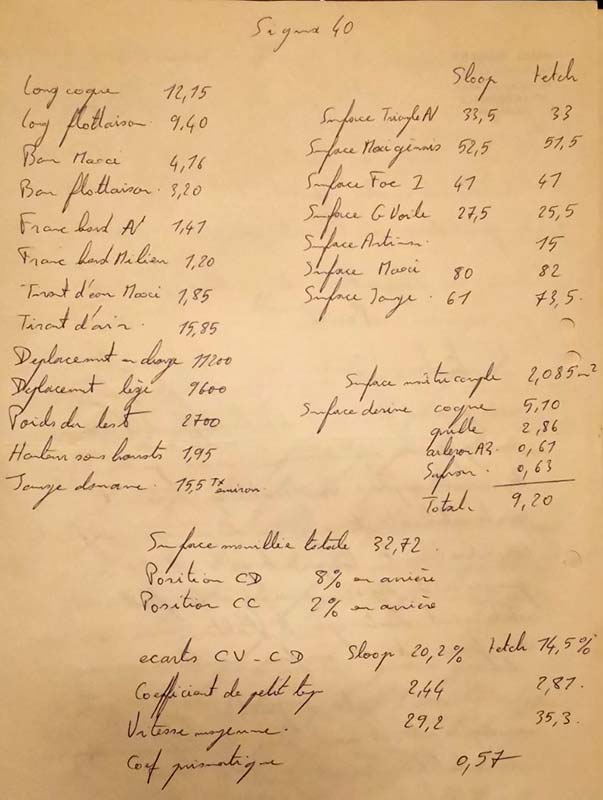 Sigma 40
Long coque 12,15
Long flottaison. 9,40
Bau Maxi 4,16
Bau flottaison. 3,20
Franc bord AV 1,41
Franc bord Milieu 1,20
Tirant d'eau Maxi 1,85
Tirant d'air. 15,85
Deplacement en charge 11200
Déplacement lège 9600
Poids du lest 2700
Hauteur sous barrots 1,95
Jauge douane. 15,5 Tx environ.
Sloop Ketch
Surface Triangle AV 33,5 33
Surface Maxi génois 52,5 51,5
Surface Foc I 41 41
Surface G Voile 27,5 25,5
Surface Artimon. 15
Surface Maxi 80 82
Surface Jauge. 61 73,5.
Surface maitre couple 2,085 m²
Surface derive coque 5,10
quille 2,86
aileron AR. 0,61
Safran. 0,63
Total. 9,20
Surface mouillée totale 32,72.
Position CD 8% en arrière
Position CC 2% en arrière
ecarts CV-CD Sloop 20,2% Ketch 14,5%
Coefficient de petit tps 2,44 2,87.
Vitesse moyenne. 29,2 35,3.
Coef prismatique 0,57